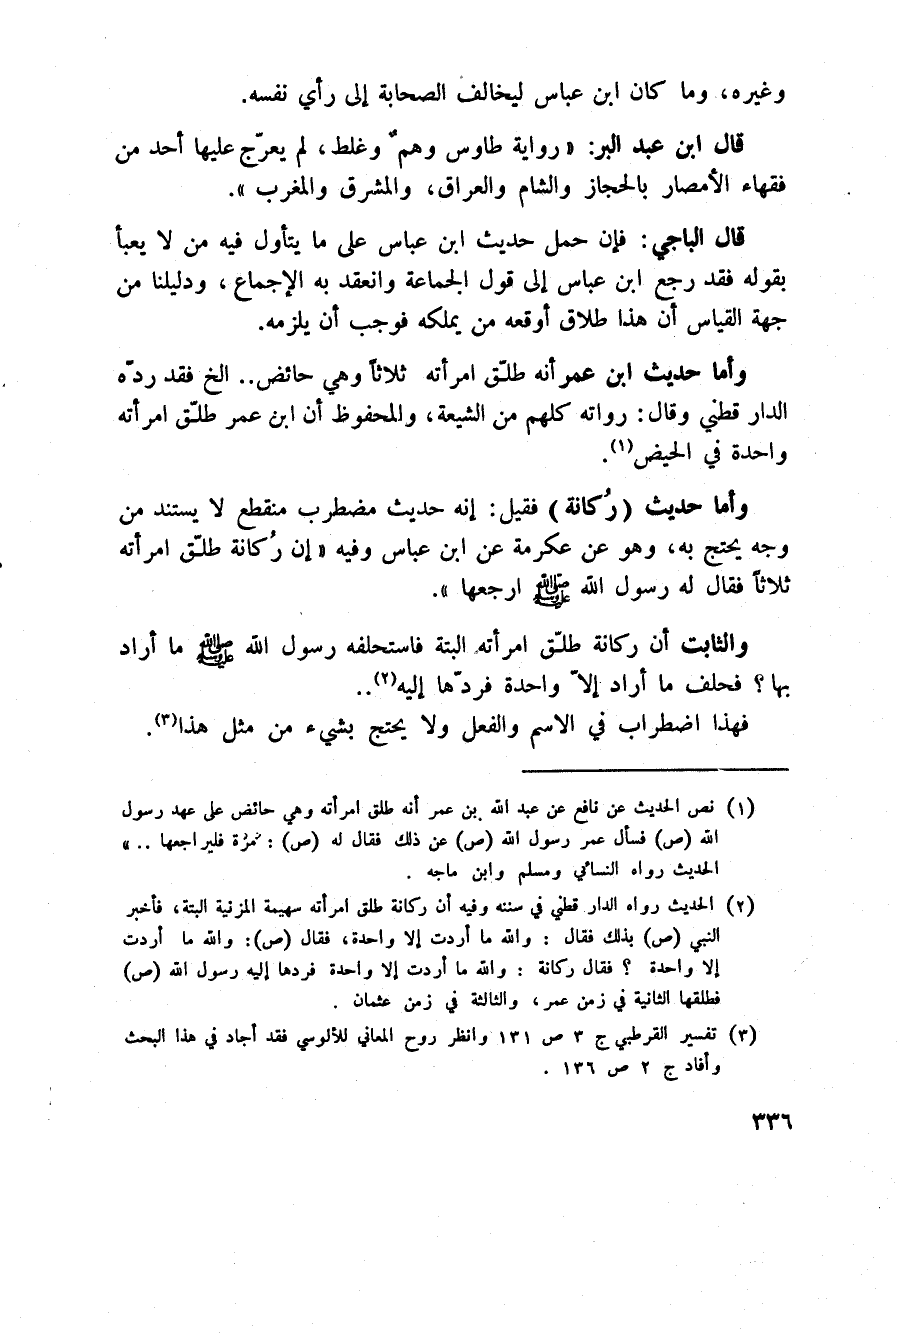 وغيره، وما كان ابن عباس ليخالف الصحابة إلى رأي نفسه.
قال ابن عبد البر: « رواية طاوس وهمٌ وغلط، لم يعرّج عليها أحد من
فقهاء الأمصار بالحجاز والشام والعراق، والمشرق والمغرب ».
قال الباجي: فإن حمل حديث ابن عباس على ما يتأول فيه من لا يعبأ
بقوله فقد رجع ابن عباس إلى قول الجماعة وانعقد به الإجماع، ودليلنا من
جهة القياس أن هذا طلاق أوقعه من يملكه فوجب أن يلزمه.
وأما حديث ابن عمر أنه طلّق امرأته ثلاثاً وهي حائض.. الخ فقد ردّه
الدار قطني وقال: رواته كلهم من الشيعة، والمحفوظ أن ابن عمر طلّق امرأته
واحدة في الحيض(١).
وأما حديث (رُكانة) فقيل: إنه حديث مضطرب منقطع لا يستند من
وجه يحتج به، وهو عن عكرمة عن ابن عباس وفيه « إن رُكانة طلّق امرأته
ثلاثاً فقال له رسول الله ﷺ ارجعها ».
والثابت أن ركانة طلّق امرأته البتة فاستحلفه رسول الله ﷺ ما أراد
بها؟ فحلف ما أراد إلاّ واحدة فردّها إليه(٢)..
فهذا اضطراب في الاسم والفعل ولا يحتج بشيء من مثل هذا(٣).
(١) نص الحديث عن نافع عن عبد الله بن عمر أنه طلق امرأته وهي حائض على عهد رسول
الله (ص) فسأل عمر رسول الله (ص) عن ذلك فقال له (ص) : مُرْهُ فليراجعها .. »
الحديث رواه النسائي ومسلم وابن ماجه .
(٢) الحديث رواه الدار قطني في سننه وفيه أن ركانة طلق امرأته سهيمة المزنية البتة، فأخبر
النبي (ص) بذلك فقال : والله ما أردت إلا واحدة، فقال (ص): والله ما أردت
إلا واحدة ؟ فقال ركانة : والله ما أردت إلا واحدة فردها إليه رسول الله (ص)
فطلقها الثانية في زمن عمر، والثالثة في زمن عثمان .
(٣) تفسير القرطبي ج ٣ ص ١٣١ وانظر روح المعاني للألوسي فقد أجاد في هذا البحث
وأفاد ج ٢ ص ١٣٦ .
٣٣٦